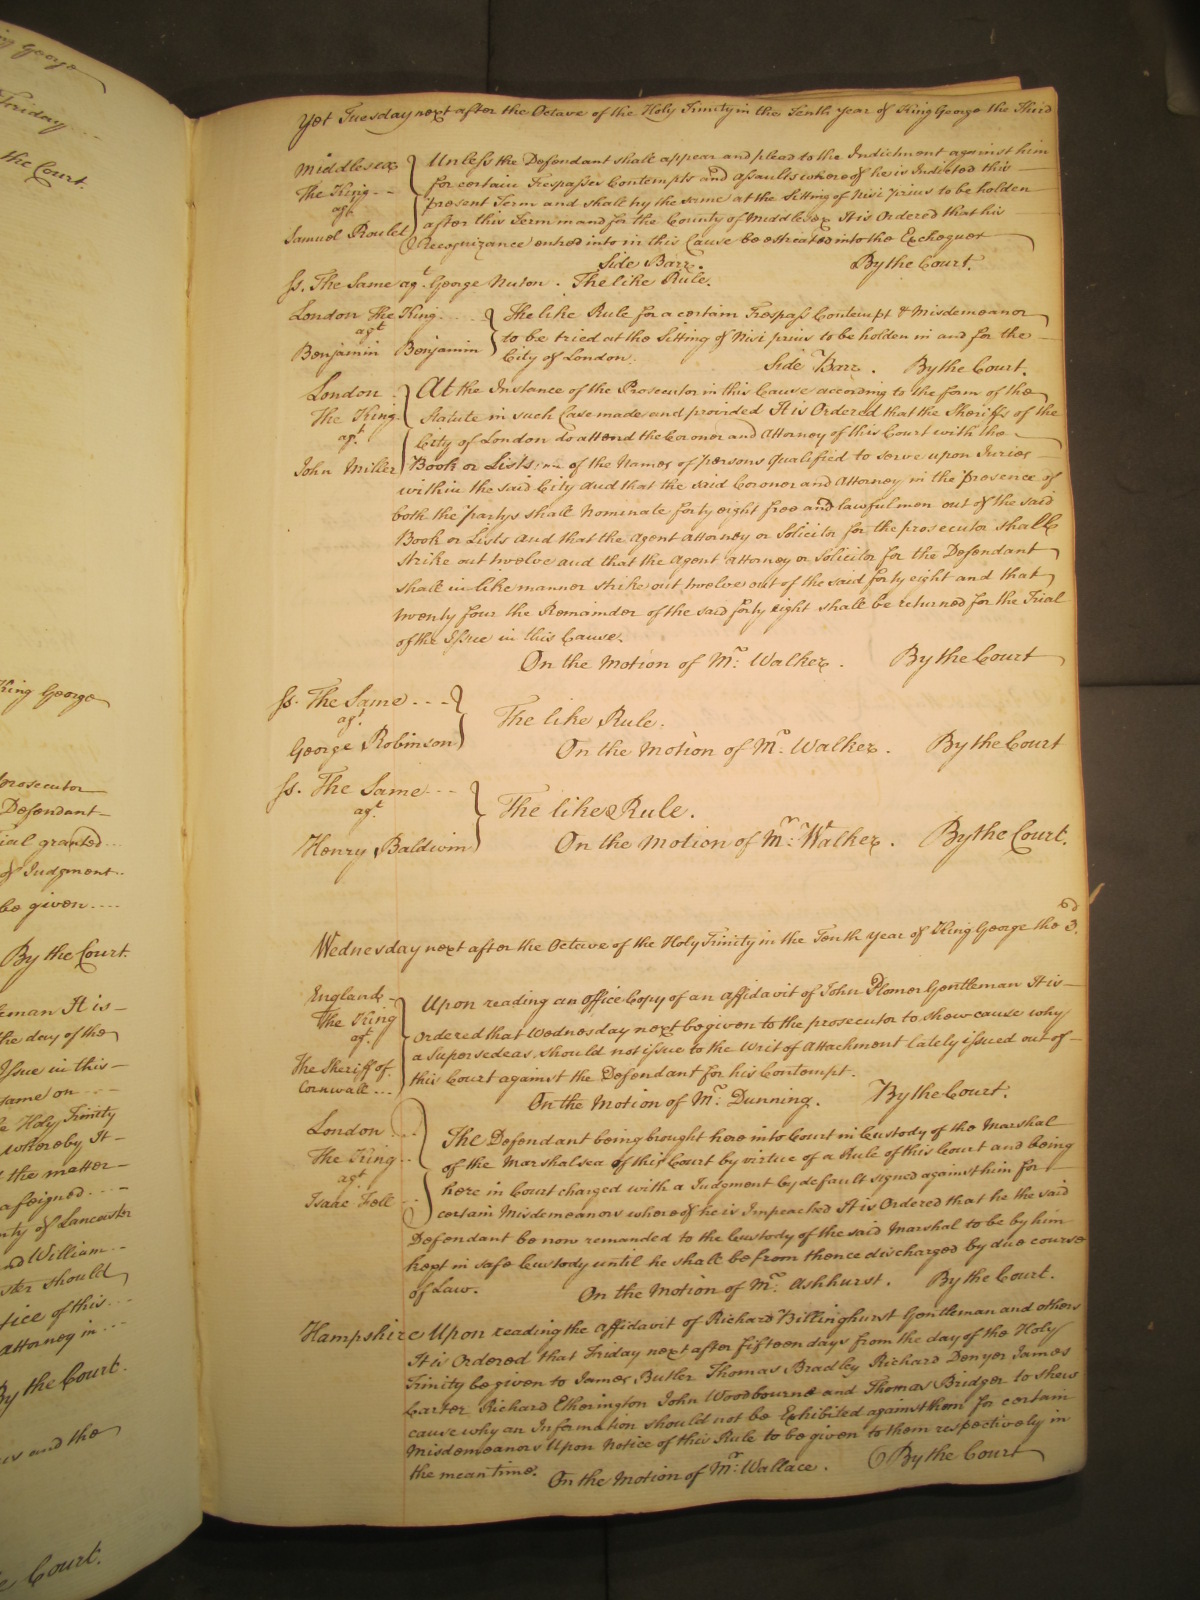 ing George
Friday ...
the Court.
King George
prosecutor
Defendant
ial granted ...
of Judgment ..
be given ....
By the Court.
leman It is
the day of the
Issue in this
same on
e Holy Trinity
whereby It
the matter
a feigned ...
nty of Lancaster
nd William ..
ster should
tice of this ...
attorney in ...
By the Court.
is and the
e Court.
Yet Tuesday next after the Octave of the Holy Trinity in the Tenth year of King George the Third
Middlesex Unless the Defendant shall appear and plead to the Indictment against him
The King for certain Trespasses Contempts and assaults whereof he is Indicted this
agt. present Term and shall try the same at the Sitting of Nisi prius to be holden
Samuel Roulet after this Term in and for the County of Middlesex It is Ordered that his
Recognizance entred into in this Cause be estreated into the Exchequer
Side Barr. By the Court.
ss. The Same agt. George Nuson. The like Rule.
London The King .... The like Rule for a certain Trespass Contempt & Misdemeanor
agt to be tried at the Sitting of Nisi prius to be holden in and for the
Benjamin Benjamin City of London.
Side Barr. By the Court.
London At the Instance of the Prosecutor in this Cause according to the form of the
The King Statute in such Case made and provided It is Ordered that the Sheriffs of the
agt. City of London do attend the Coroner and Attorney of this Court with the
John Miller Book or Lists of the Names of persons qualified to serve upon Juries
within the said City And that the said Coroner and Attorney in the presence of
both the partys shall Nominate forty eight free and lawful men out of the said
Book or Lists And that the Agent Attorney or Solicitor for the prosecutor shall
strike out twelve and that the Agent Attorney or Solicitor for the Defendant
shall in like manner strike out twelve out of the said forty eight and that
twenty four the Remainder of the said forty eight shall be returned for the Trial
of the Issue in this Cause.
On the Motion of Mr. Walker. By the Court
ss. The Same ...
agt. The like Rule.
George Robinson On the Motion of Mr. Walker. By the Court
ss. The Same ...
agt. The like Rule.
Henry Baldwin On the Motion of Mr. Walker. By the Court.
Wednesday next after the Octave of the Holy Trinity in the Tenth year of King George the 3d.
England Upon reading an office Copy of an affidavit of John Plomer Gentleman It is
The King Ordered that Wednesday next be given to the prosecutor to shew cause why
agt. a Supersedeas should not issue to the Writ of Attachment lately issued out of
The Sheriff of this Court against the Defendant for his Contempt.
Cornwall ... On the Motion of Mr. Dunning. By the Court.
London The Defendant being brought here into Court in Custody of the Marshal
The King of the Marshalsea of this Court by virtue of a Rule of this Court and being
agt. here in Court charged with a Judgment by default signed against him for
Isaac Fell certain Misdemeanors whereof he is Impeached It is Ordered that he the said
Defendant be now remanded to the Custody of the said Marshal to be by him
kept in safe Custody until he shall be from thence discharged by due course
of Law. On the Motion of Mr. Ashhurst. By the Court.
Hampshire Upon reading the Affidavit of Richard Billinghurst Gentleman and others
It is Ordered that Friday next after fifteen days from the day of the Holy
Trinity be given to James Butler Thomas Bradley Richard Denyer James
Carter Richard Etherington John Woodbourne and Thomas Bridger to shew
cause why an Information should not be Exhibited against them for certain
Misdemeanors Upon Notice of this Rule to be given to them respectively in
the mean time. On the Motion of Mr. Wallace. By the Court